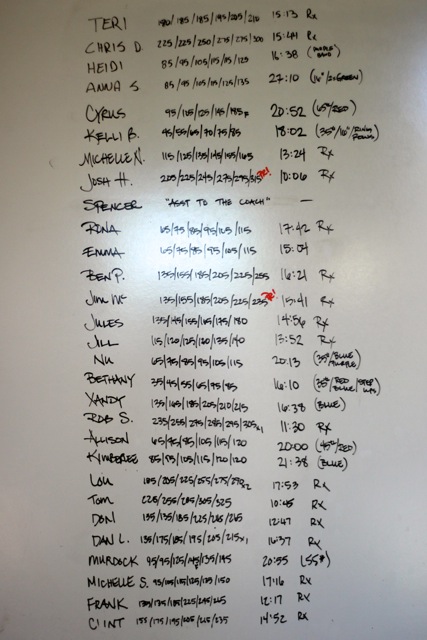 TERI 180/185/185/195/205/210 15:13 Rx
CHRIS D. 225/225/250/275/275/300 15:41 Rx
HEIDI 85/95/105/115/115/125 16:38 (PURPLE BAND)
ANNA S. 85/95/105/115/125/135 27:10 (16"/2xGREEN)
CYRUS 95/105/125/145/195F 20:52 (65#/RED)
KELLI B. 45/55/65/70/75/85 18:02 (35#/16"/RING ROWS)
MICHELLE N. 115/125/135/145/155/165 13:24 Rx
JOSH H. 205/225/245/275/295/315 PR! 10:06 Rx
SPENCER "ASST TO THE COACH" —
RINA 65/75/85/95/105/115 17:42 Rx
EMMA 65/75/85/95/105/115 15:04
BEN P. 135/155/185/205/225/255 16:21 Rx
JIM Mc 135/155/185/205/225/235 PR! 15:41 Rx
JULES 135/145/155/165/175/180 14:56 Rx
JILL 115/120/125/130/135/140 13:52 Rx
NU 65/75/85/95/105/115 20:13 (35#/BLUE PURPLE)
BETHANY 35/45/55/65/75/85 16:10 (35#/RED BLUE/STEP UPS)
XANDY 135/165/185/205/210/215 16:38 (BLUE)
ROB S. 235/255/275/285/295/305x1 11:30 Rx
ALLISON 65/75/85/105/115/120 20:00 (45#/RED)
KIMBERLEE 85/95/105/115/120/120 21:38 (BLUE)
LOU 185/205/225/255/275/290x2 17:53 Rx
TOM 225/255/285/305/325 10:45 Rx
DON 135/135/185/225/245/265 12:47 Rx
DAN L. 135/175/185/195/205/215x1 16:37 Rx
MURDOCK 95/95/125/145/135/145 20:55 (55#)
MICHELLE S. 95/105/115/125/135/150 17:16 Rx
FRANK 135/175/185/225/245/265 12:17 Rx
CLINT 155/175/195/205/215/235 14:52 Rx